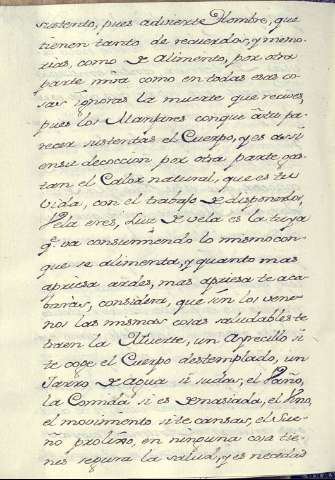 sustento, pues advierte Hombre, que
tienen tanto de recuerdos, y memo-
rias, como de alimento, por otra
parte mira como en todas esas co-
sas ignoras la muerte que recives,
pues los Manjares con que à tu pa-
recer sustentas el Cuerpo, y es assi
en su decoccion por otra parte, gas-
tan el Calor natural, que es tu
vida, con el trabajo de disponerlos,
Vela eres, Luz de vela es la tuya
q.e va consumiendo lo mismo con
que se alimenta, y quanto mas
apriesa ardes, mas apriesa te aca-
baràs, considera, que sin los vene-
nos las mismas cosas saludables te
traen la Muerte, un Ayrecillo si
te coge el Cuerpo destemplado, un
Jarro de agua si sudas, el Baño,
la Comida si es demasiada, el Vino,
el movimiento si te cansas, el Sue-
ño prolixo, en ninguna cosa tie-
nes segura la salud, y es necedad